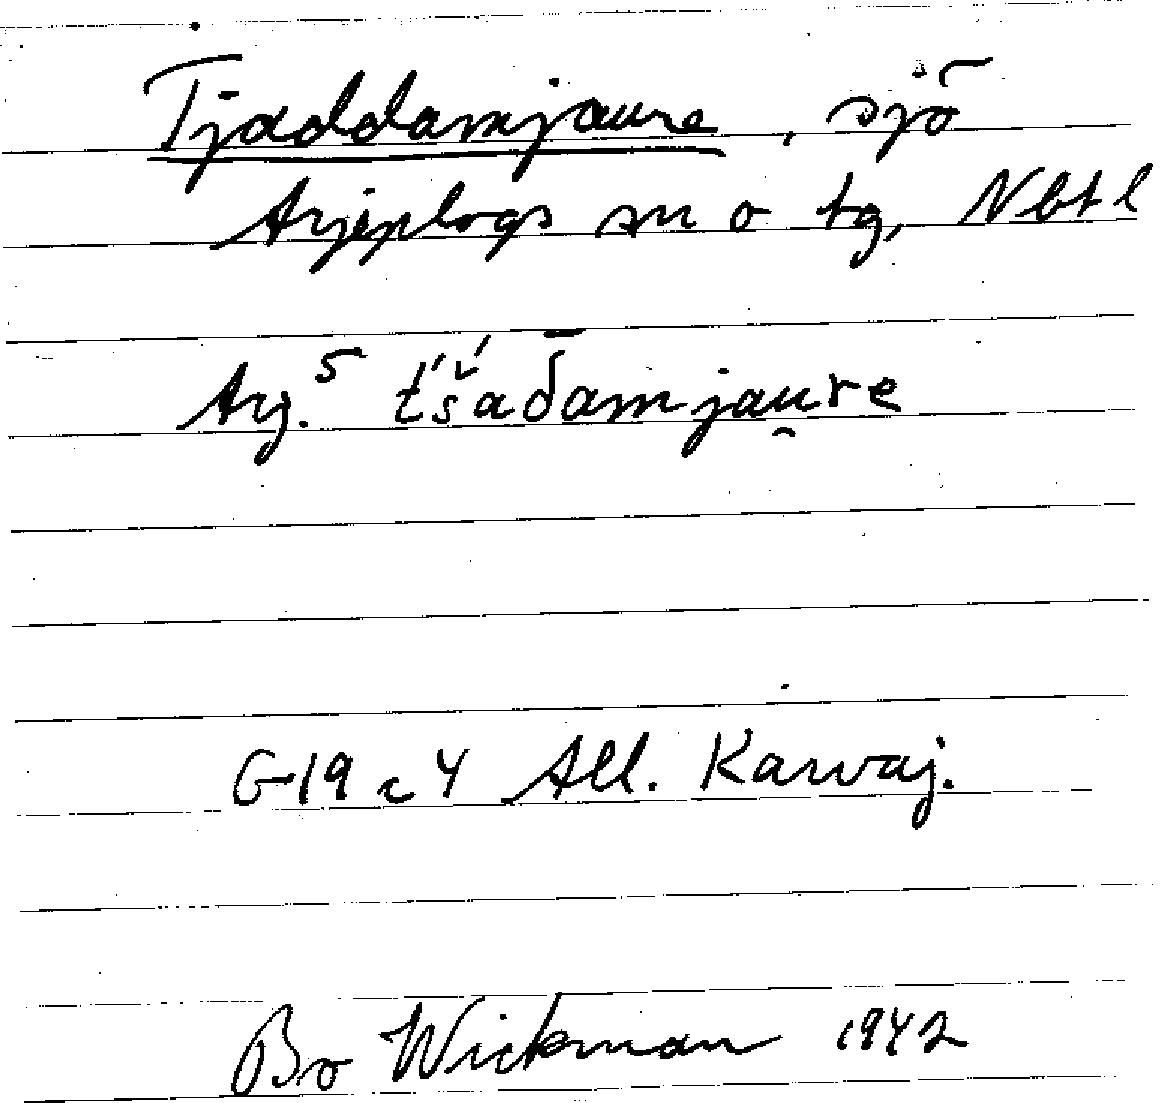 Tjaddamjaure, sjö
Arjeplogs sn o tg, Nbtl
Arj.5 t́š́aδ̄amjau̯re
G-19 c 4 All. Karvaj.
Bo Wickman 1942